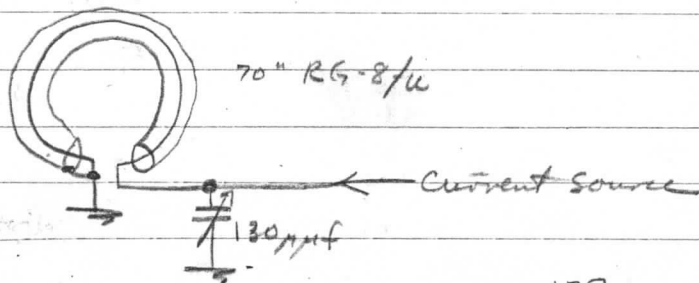 70" RG-8/U
Current Source
130μμf